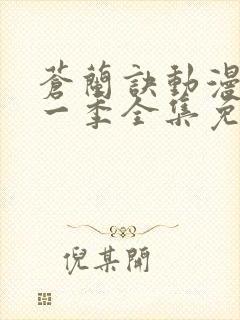 蒼蘭訣動漫
一季全集免
倪某開